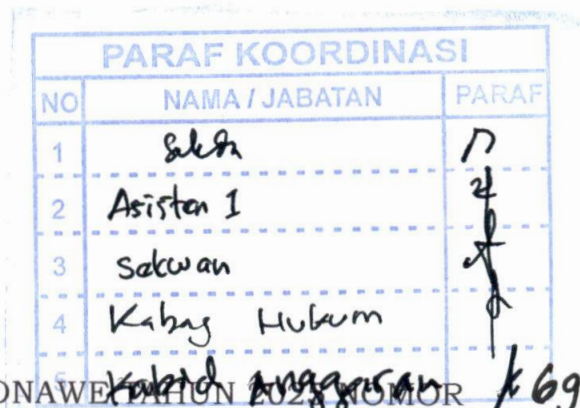 PARAF KOORDINASI
NO NAMA / JABATAN PARAF
1 Sekda
2 Asisten I
3 Sekwan
4 Kabag Hukum
5 Kabid Anggaran
TAHUN NOMOR 69